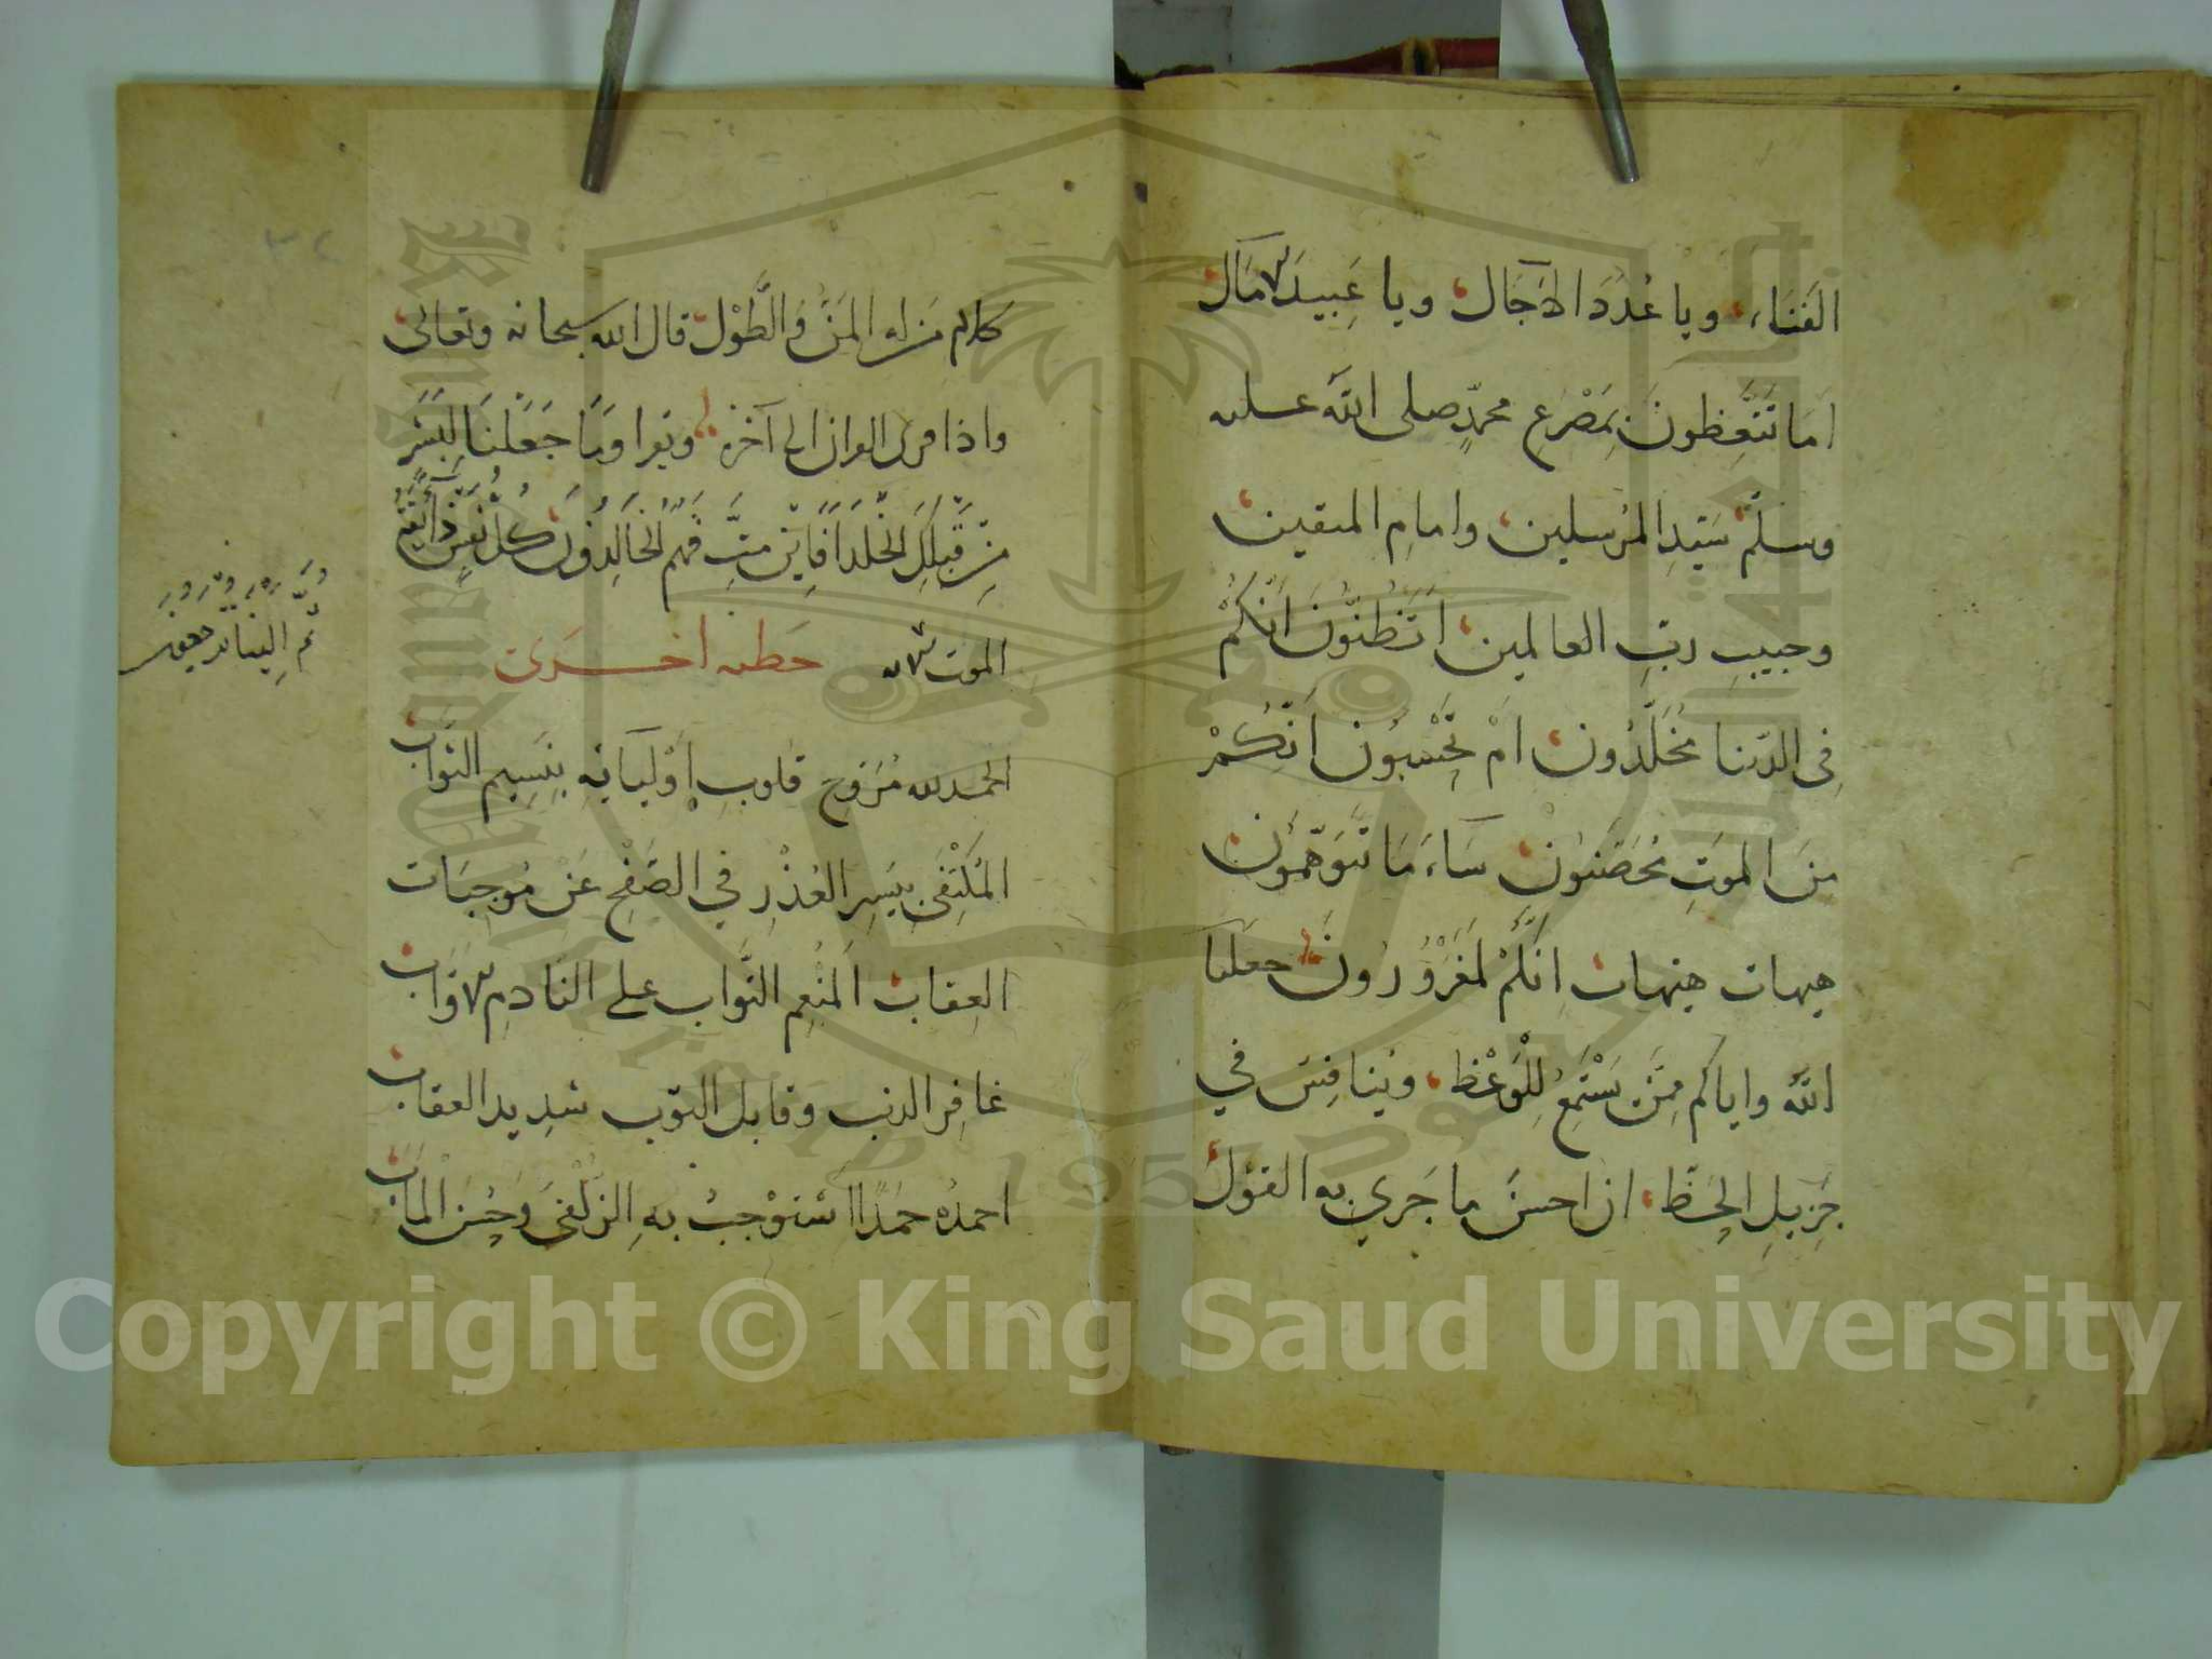 الفَنَاءِ، ويا عُدَدَ الآجَال ويا عَبيدَ الآمَال
اَمَا تَتَّعِظونَ بِمَصْرَعِ محمدٍ صلى الله عليه
وسلمَ سَيّدِ المرُسلين وامامِ المتقين
وحبيبِ ربِ العالمين اَتَظُنُّونَ اَنَّكُمْ
في الدنيا مُخَلَّدُون امْ تَحْسبُون اَنّكُمْ
مِنَ الموتِ مُحَصَّنُون سَاءَ مَا تَتَوَهَّمُون
هيهات هيهات اِنَّكُمْ لمَغْرُورُون جعلنا
الله واياكم مِمَّنْ يَسْتَمِعُ لِلْوَعْظ ويُنافِسُ في
جَزيلِ الحَظّ ان احسنَ ما جَرَي به القَوْل
كلام مَن له المَنُّ وَالطَّوْل قال الله سبحانه وتعالى
واذا قرئ القران الى آخره ويقرا وَمَا جَعَلْنَا لِبَشَرٍ
مِنْ قَبْلِكَ الخُلْدَ اَفَاِئنْ مِتَّ فَهُمُ الخَالِدُونَ كلُّ نَفْسٍ ذَائقَةُ
الموت الآية خطبة اخـرى
ثم اِلينا ترجعون
الحمد لله مُرَوِّحِ قلوبِ اَوْليَائِهِ بِنَسِيمِ الثوَاب
المُكْتَفِي بِيَسِيرِ العُذْرِ في الصَفْحِ عَنْ مُوجِبَات
العِقاب المُنْعِمِ التَّوَّاب على النَادِمِ الاَوَّاب
غافِر الذنب وقابل التوب شدِيد العقاب
احمدُه حمَدًا استوْجبُ بِهِ الزُلْفَى وَحُسْنَ المَاب
Copyright © King Saud University